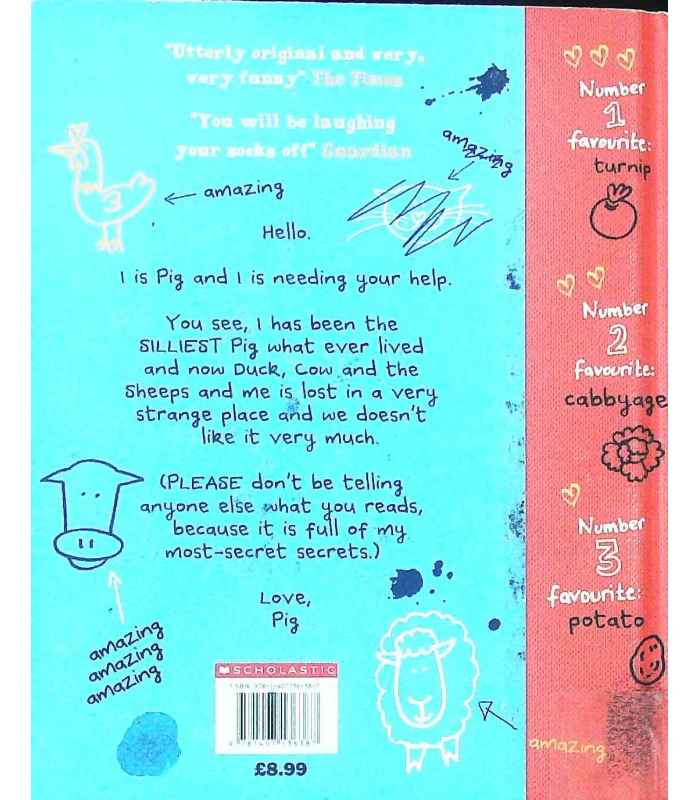 "Utterly original and very,
very funny" The Times
"You will be laughing
your socks off" Guardian
amazing
amazing
Hello.
I is Pig and I is needing your help.
You see, I has been the
SILLIEST Pig what ever lived
and now Duck, Cow and the
Sheeps and me is lost in a very
strange place and we doesn't
like it very much.
(PLEASE don't be telling
anyone else what you reads,
because it is full of my
most-secret secrets.)
Love,
Pig
amazing
amazing
amazing
SCHOLASTIC
£8.99
Number
1
favourite:
turnip
Number
2
favourite:
cabbyage
Number
3
favourite:
potato
amazing
3